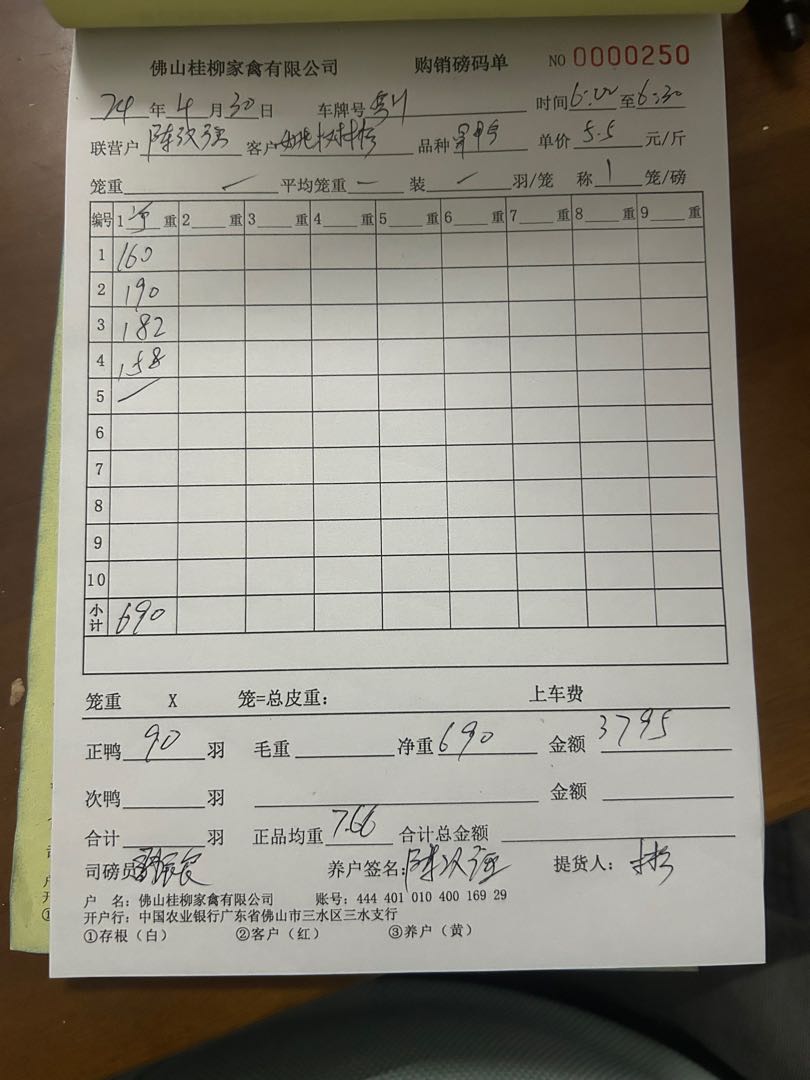 佛山桂柳家禽有限公司 购销磅码单 NO 0000250
24 年 4 月 30 日 车牌号 时间 6:00 至 6:30
联营户 陈汉强 客户 品种 单价 5.5 元/斤
笼重 平均笼重 — 装 羽/笼 称 1 笼/磅
编号 1 净 重 2 重 3 重 4 重 5 重 6 重 7 重 8 重 9 重
1 160
2 190
3 182
4 158
5
6
7
8
9
10
小计 690
笼重 X 笼=总皮重: 上车费
正鸭 90 羽 毛重 净重 690 金额 3795
次鸭 羽 金额
合计 羽 正品均重 7.66 合计总金额
司磅员 养户签名: 陈汉强 提货人:
户 名: 佛山桂柳家禽有限公司 账号: 444 401 010 400 169 29
开户行: 中国农业银行广东省佛山市三水区三水支行
①存根（白） ②客户（红） ③养户（黄）